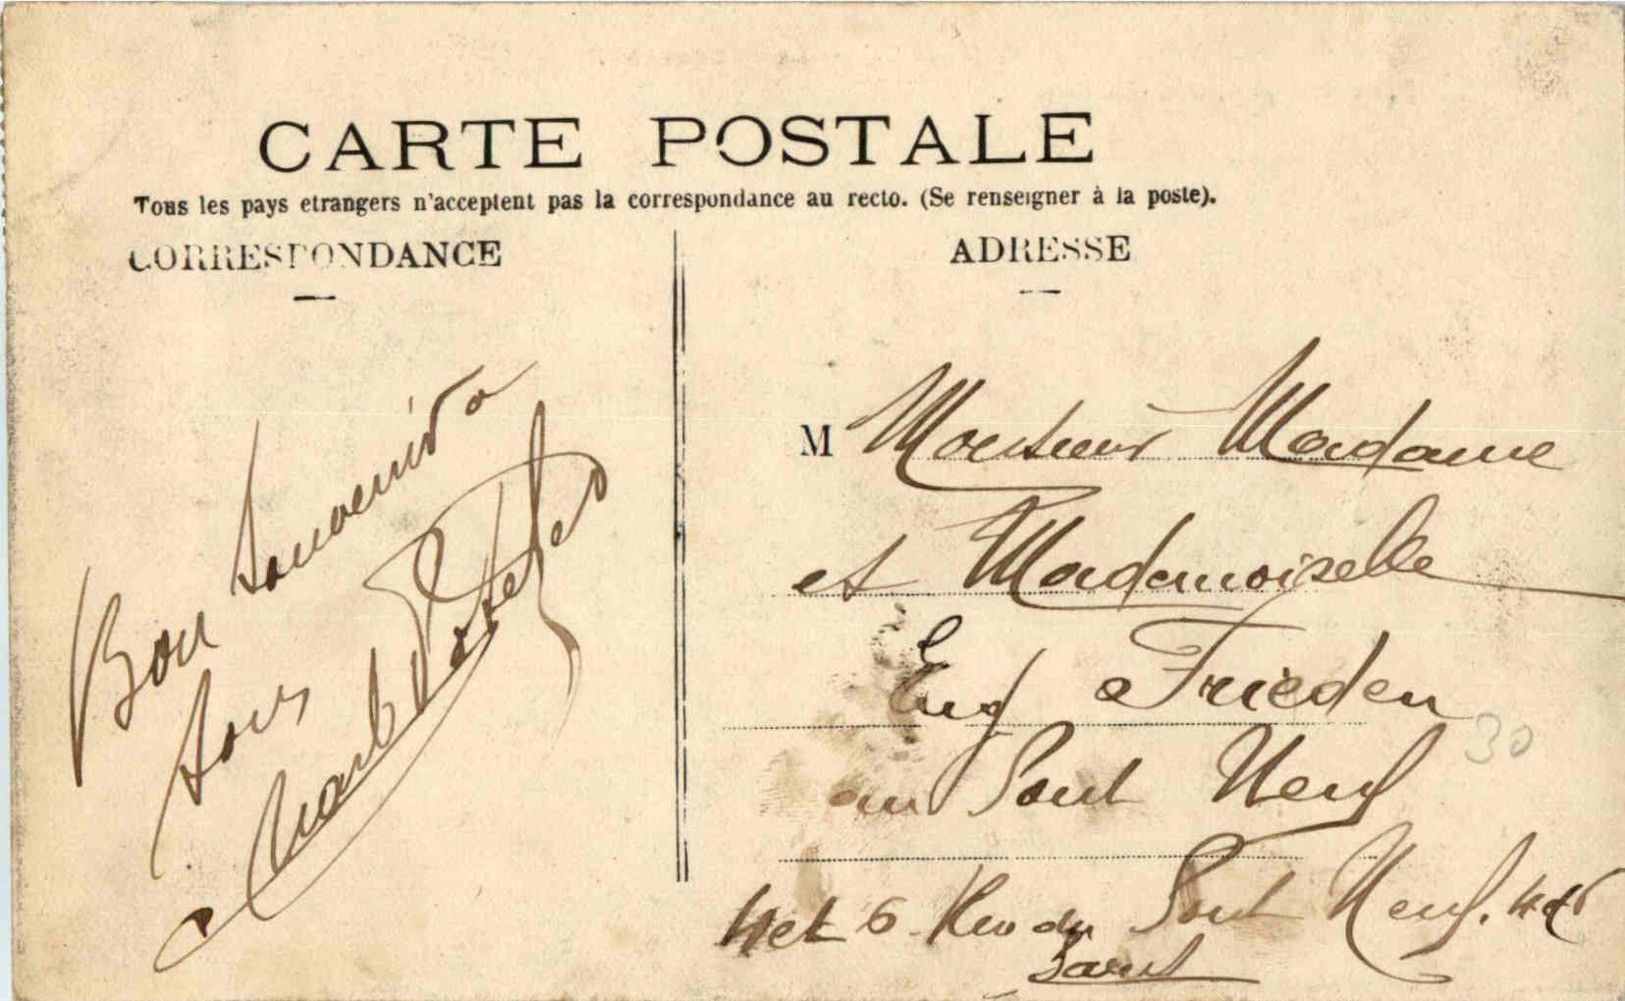 CARTE POSTALE
Tous les pays etrangers n'acceptent pas la correspondance au recto. (Se renseigner à la poste).
CORRESPONDANCE
ADRESSE
Bon Souvenir
M Monsieur Madame
et Mademoiselle
Eug Frieden
au Pont Neuf
4 et 6 Rue du Pont Neuf. 4 et 6
Paris
30